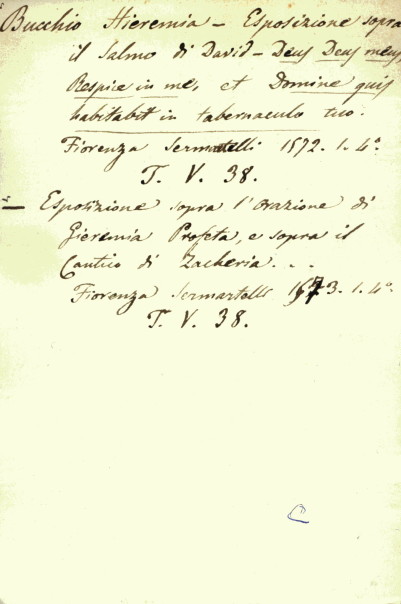 Bucchio Hieremia - Esposizione sopra
il Salmo di David - Deus Deus meus
Respice in me, et Domine quis
habitabit in tabernaculo tuo.
Fiorenza Sermartelli 1572. 1. 4°.
T. V. 38.
— Esposizione sopra l'orazione di
Gieremia Profeta, e sopra il
Cantico di Zacheria . . .
Fiorenza Sermartelli 1573. 1. 4°.
T. V. 38.
C